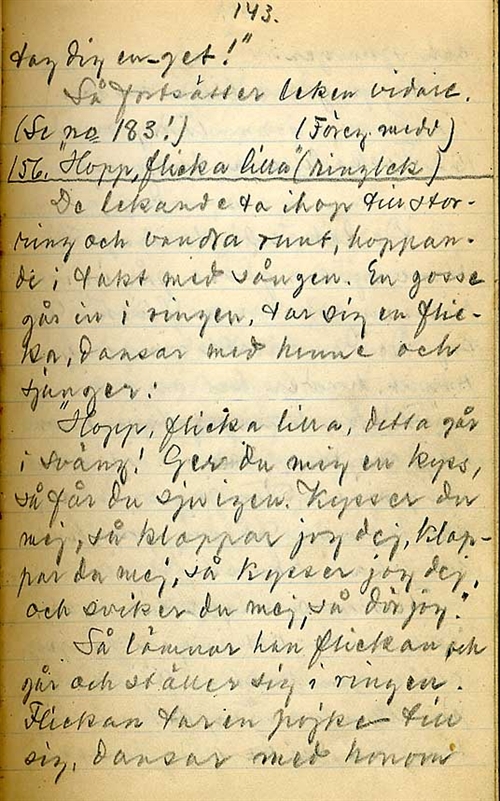 143.
tag dig en get!"
Så fortsätter leken vidare.
(Se no 183!) (Föreg. medd)
156. "Hopp, flicka lilla" (ringlek)
De lekande ta ihop till stor-
ring och vandra runt, hoppan-
de i takt med sången. En gosse
går in i ringen, tar sig en flic-
ka, dansar med henne och
sjunger:
"Hopp, flicka lilla, detta går
i sväng! Ger du mig en kyss,
så får du sju igen. Kysser du
mej, så klappar jag dej, klap-
par du mej, så kysser jag dej,
och sviker du mej, så dör jag."
Så lämnar han flickan och
går och ställer sig i ringen.
Flickan tar en pojke till
sig, dansar med honom